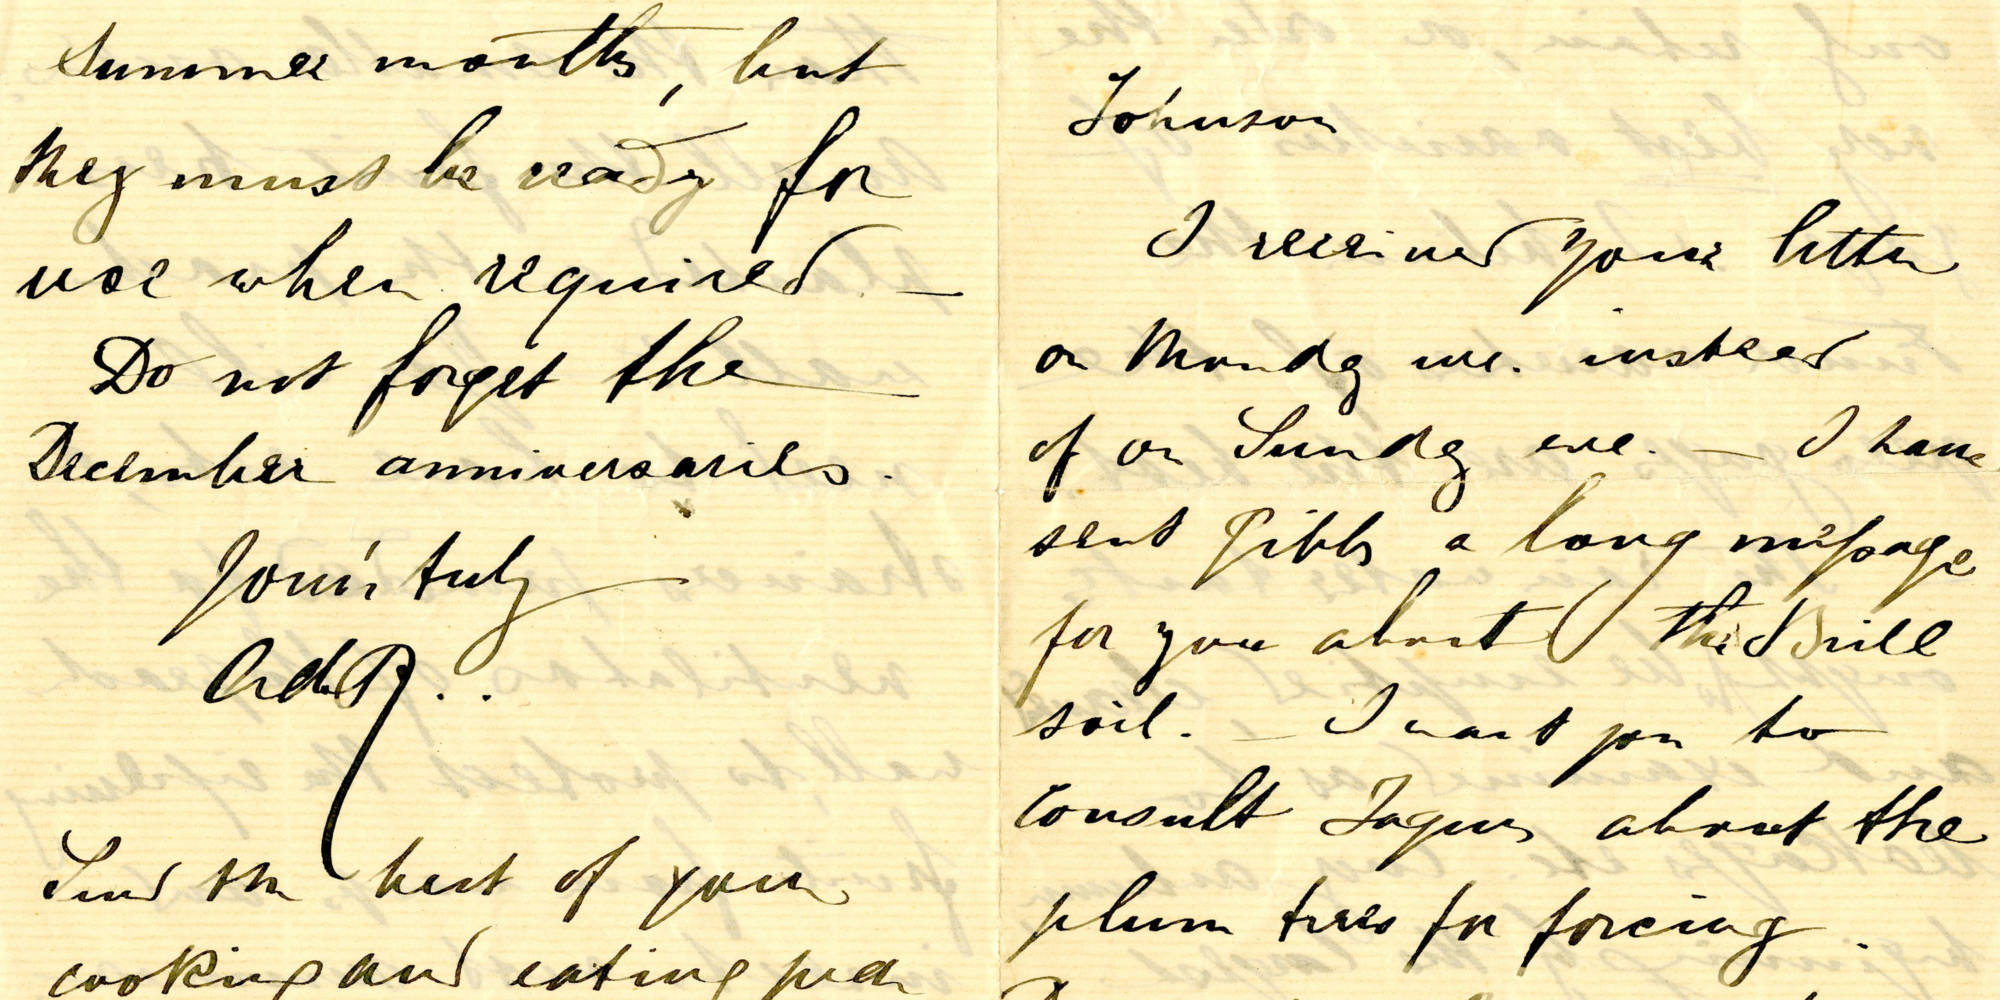 Summer months, but
they must be ready for
use when required. —
Do not forget the
December anniversaries.
Yours truly
AdeR..
Send the best of your
cooking and eating pea
Johnson
I received your letter
on Monday eve. instead
of on Sunday eve. — I have
sent Gibbs a long message
for you about the Brill
soil. — I want you to
consult about the
plum trees for forcing.